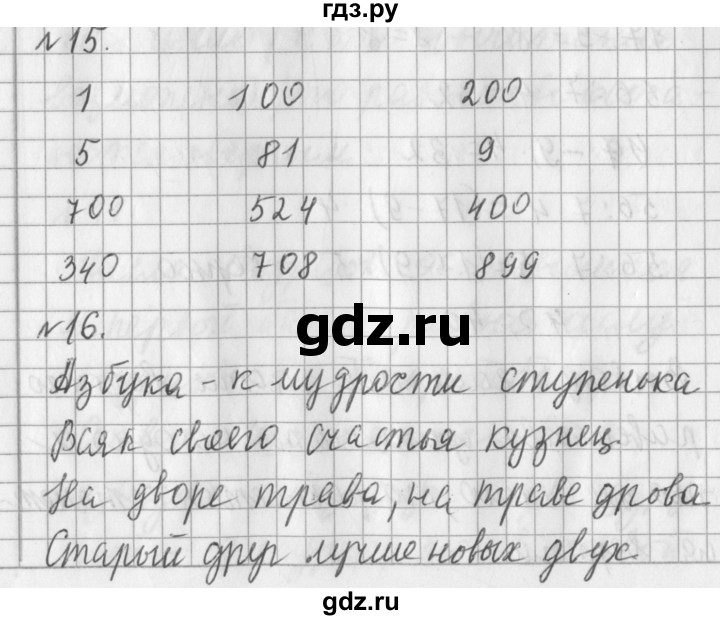 гдз.ру
№15.
1 100 200
5 81 9
700 524 400
340 708 899
№16.
gdz.ru
Азбука - к мудрости ступенька
Всяк своего счастья кузнец.
На дворе трава, на траве дрова
Старый друг лучше новых двух.
gdz.ru